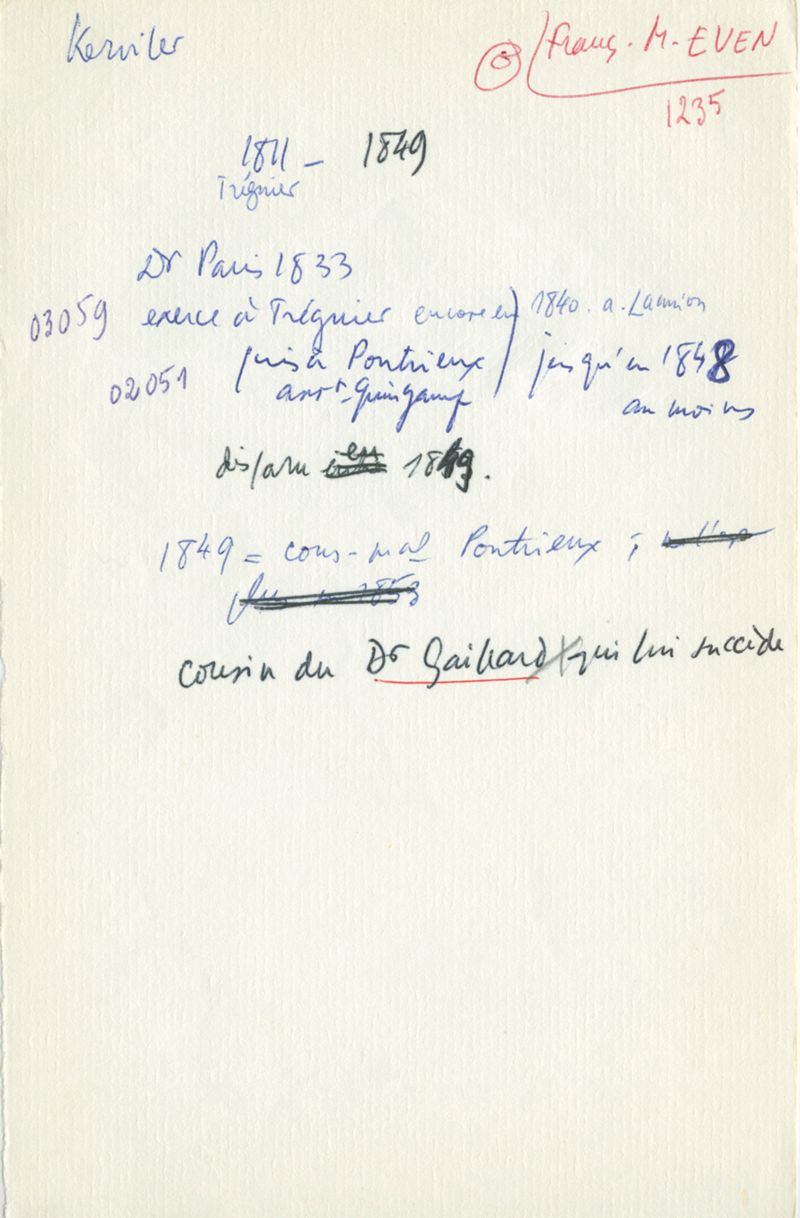 Kerviler
Franç. M. EVEN
1235
1811 - 1849
Tréguier
Dr Paris 1833
03059 exerce à Tréguier encore en 1840. a. Lannion
02051 puis à Pontrieux jusqu'en 1848
arrt Guingamp au moins
disparu en 1849.
1849 = cons-mal Pontrieux ;
plus 1853
cousin du Dr Gaillard qui lui succède